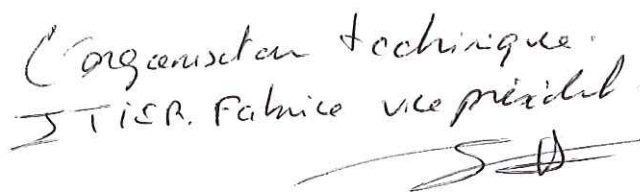 L'organisation technique.
STIER. Fabrice vice président.